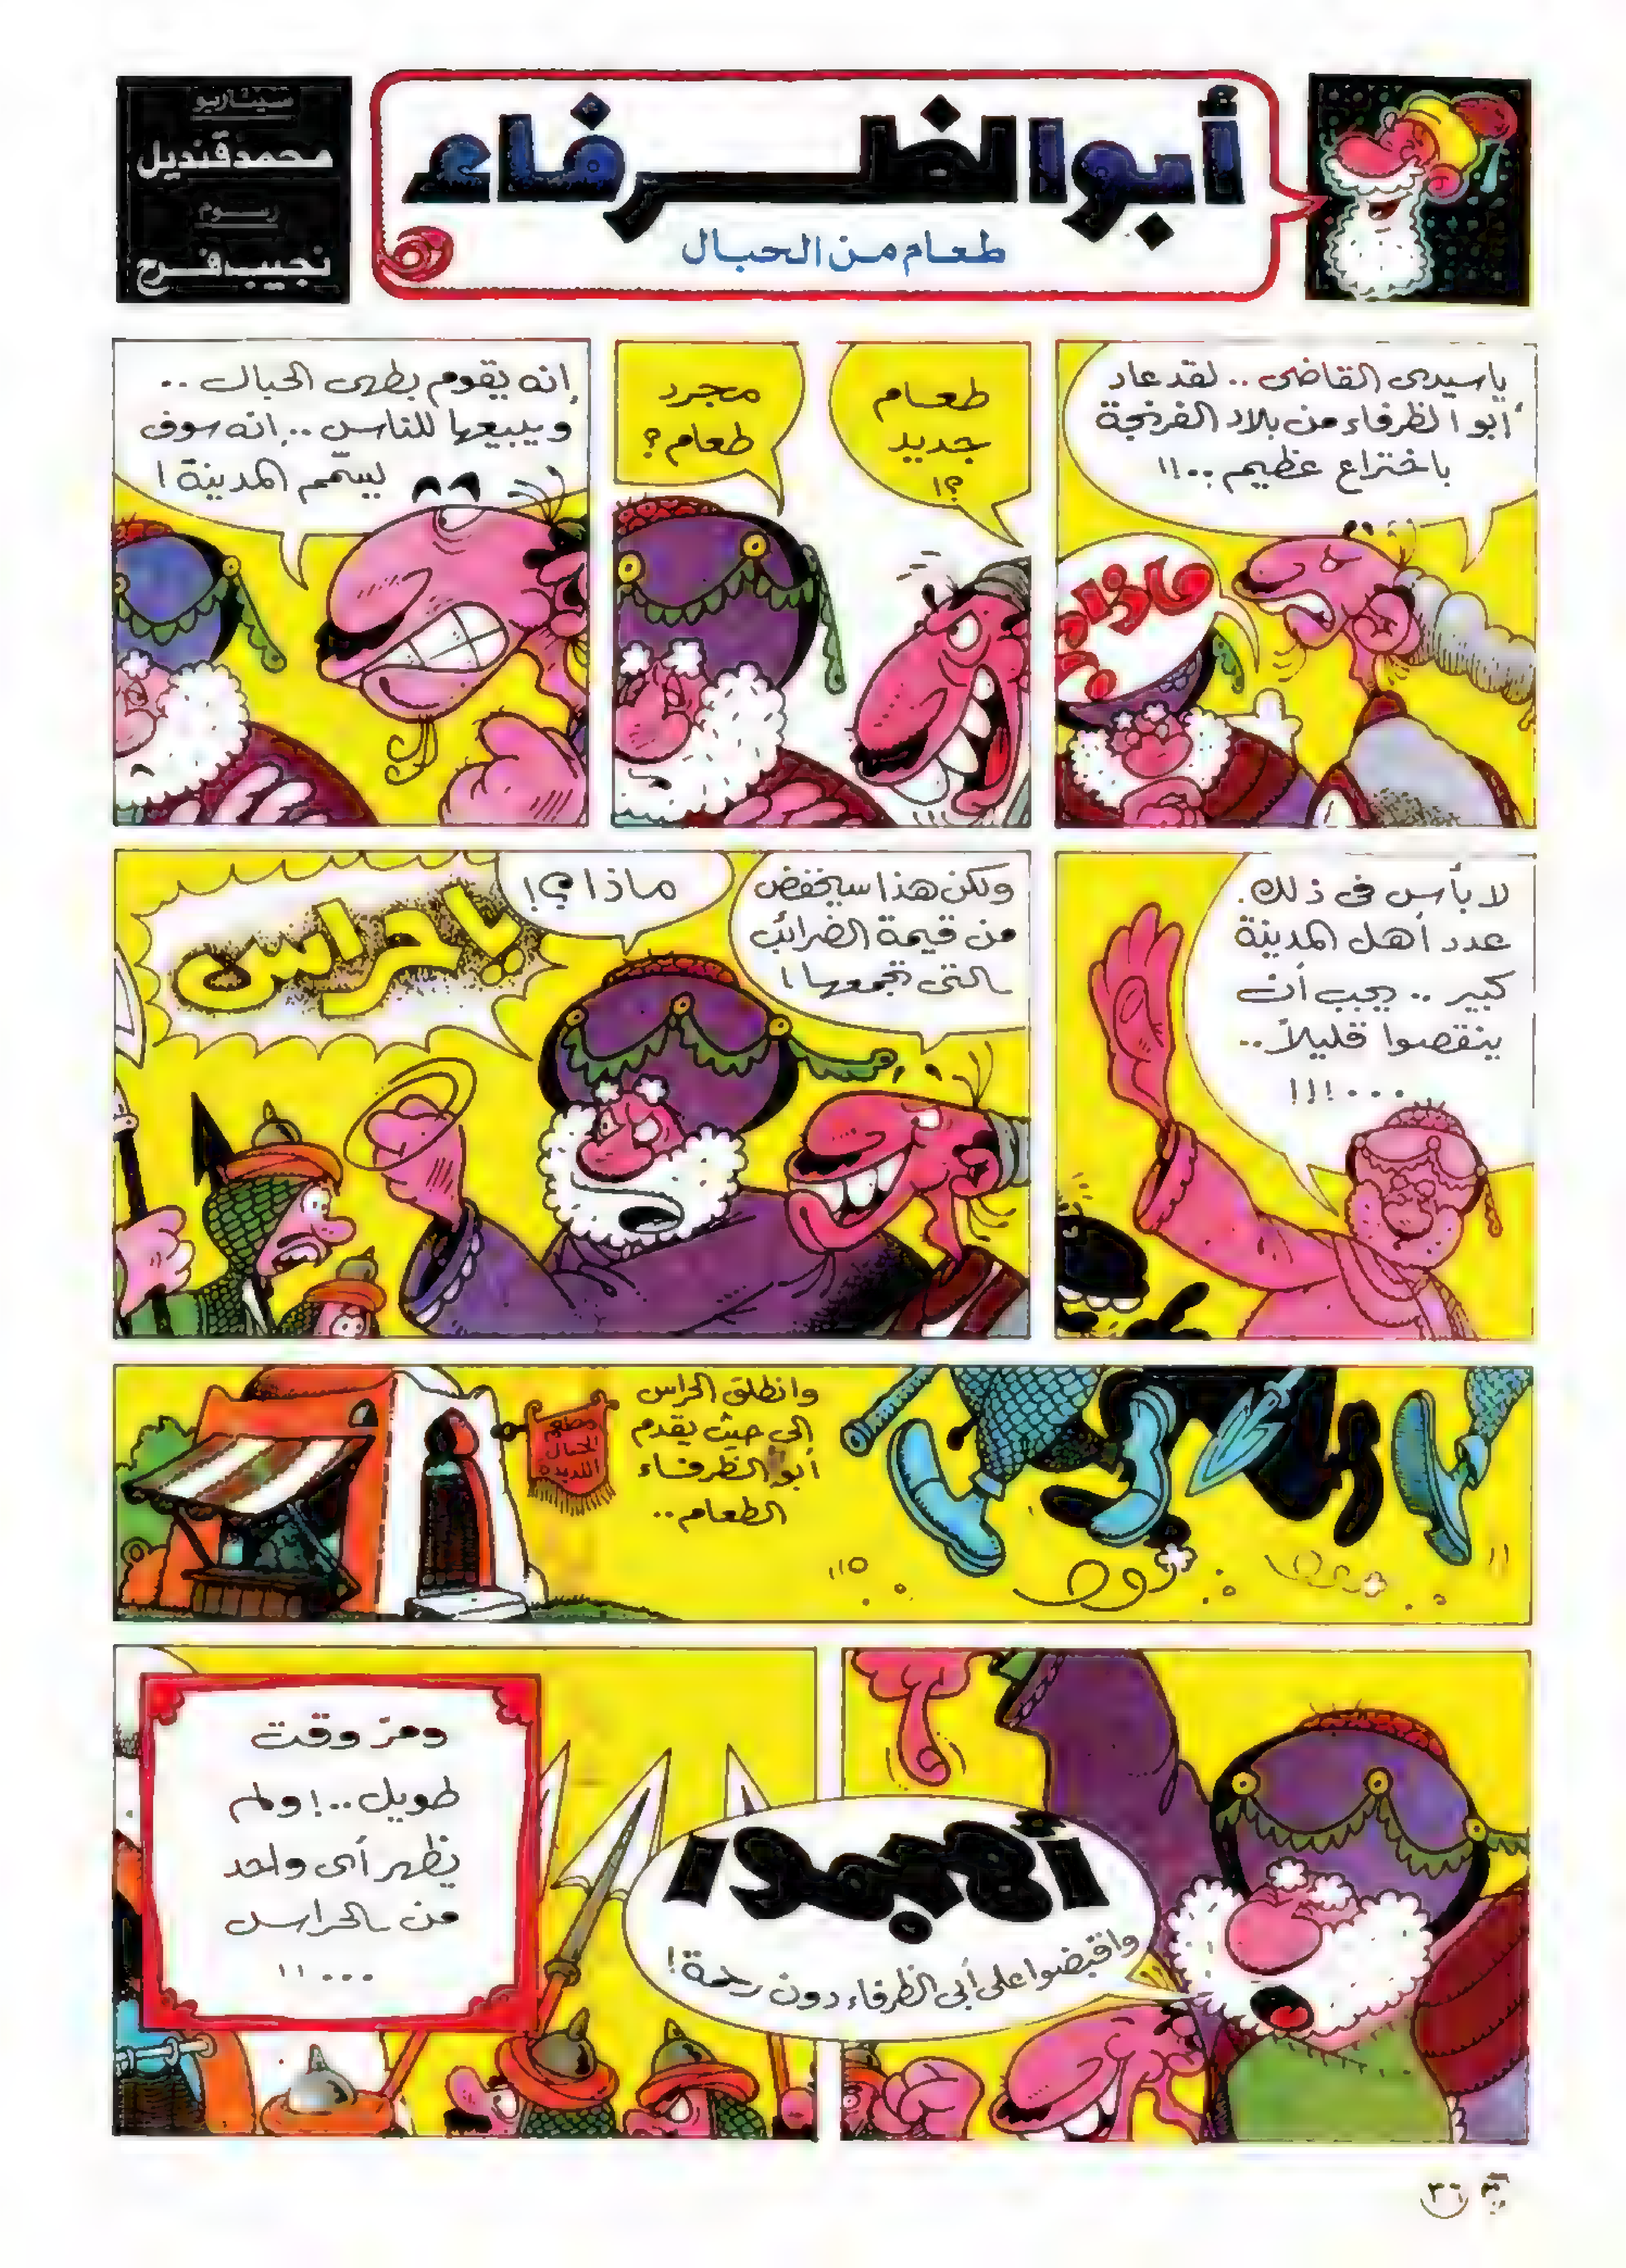 أبو الظرفاء
طعام من الحبال
سيناريو
محمد قنديل
رسوم
نجيب فرح
يا سيدى القاضى .. لقد عاد
أبو الظرفاء من بلاد الفرنجة
باختراع عظيم ..!!
ماذا
؟
طعام
جديد
؟!
مجرد
طعام؟
إنه يقوم بطهى الحبال ..
ويبيعها للناس .. إنه سوف
يسمم المدينة!
لا بأس فى ذلك.
عدد أهل المدينة
كبير .. يجب أن
ينقصوا قليلاً ..
...!!!
ولكن هذا سيخفض
من قيمة الضرائب
التى تجمعها!
ماذا؟!
يا حراس
وانطلق الحراس
إلى حيث يقدم
أبو الظرفاء
الطعام ..
مطعم
الحبال
اللذيذة
أهجموا
واقبضوا على أبى الظرفاء دون رحمة!
ومرّ وقت
طويل ..! ولم
يظهر أى واحد
من الحراس
...!!
٣٦